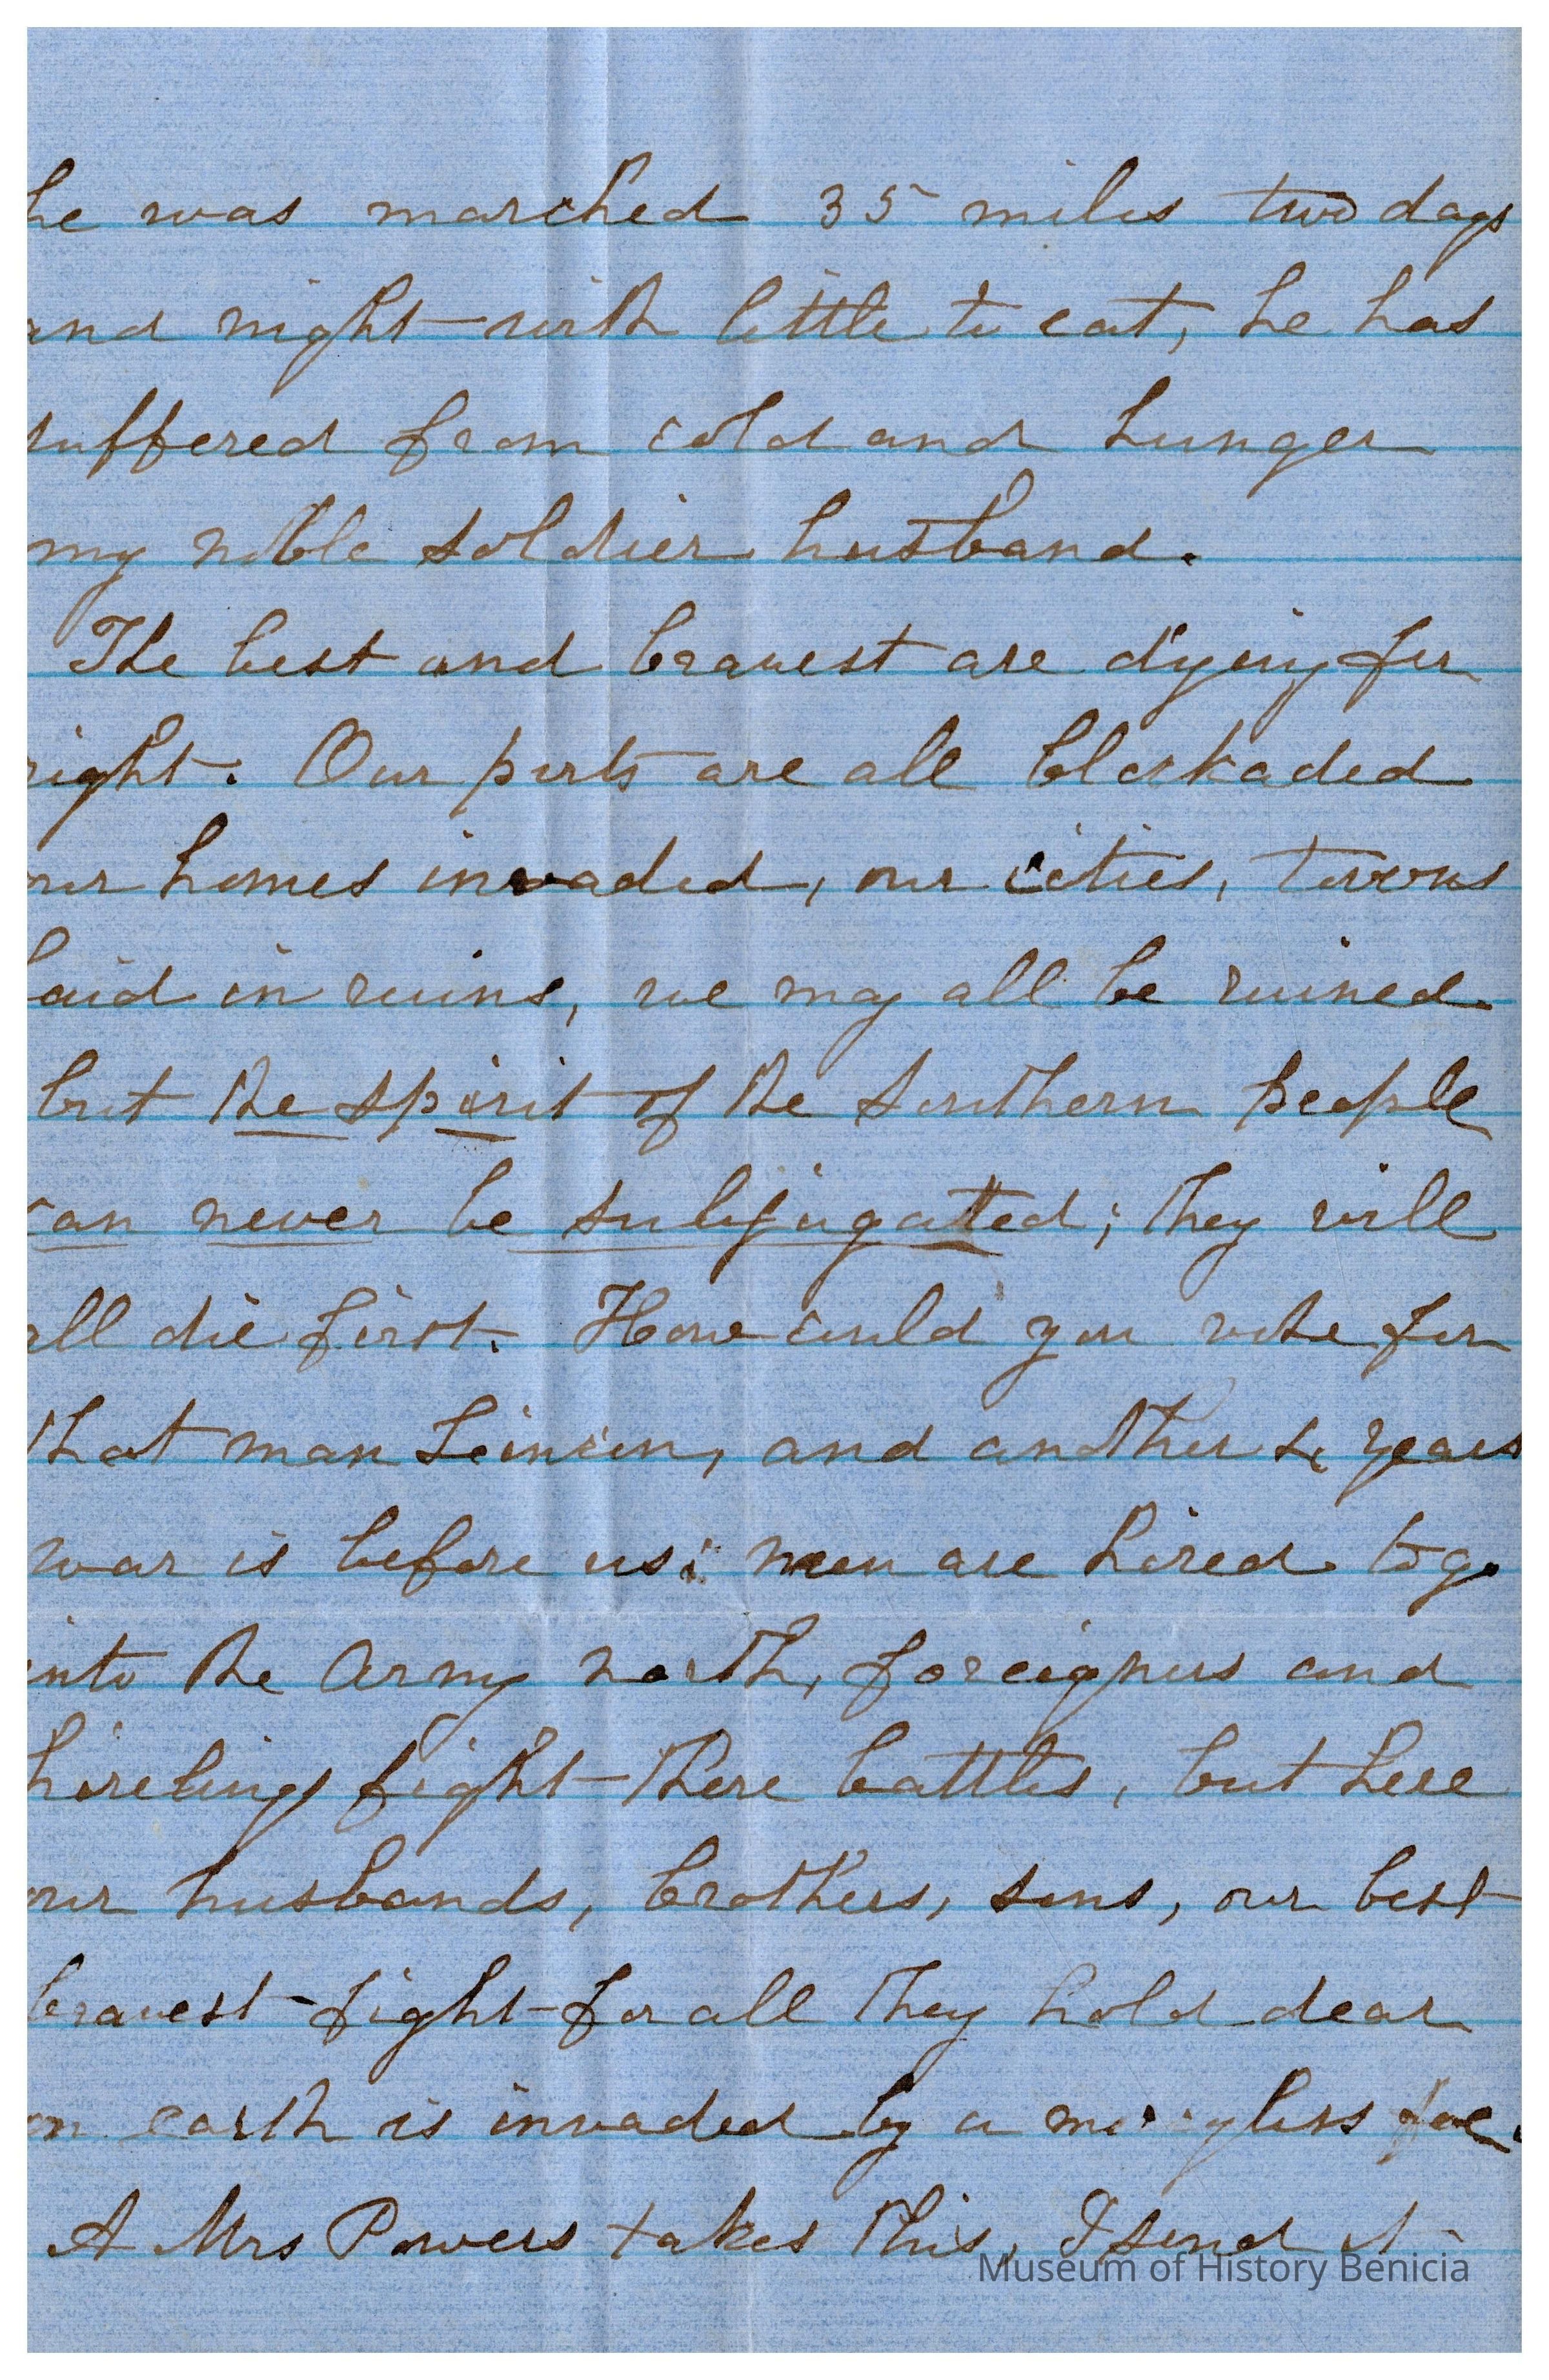 he was marched 35 miles two days
and night with little to eat, he has
suffered from cold and hunger
my noble soldier husband.
The best and bravest are dying for
right. Our ports are all blockaded
our homes invaded, our cities, towns
laid in ruins, we may all be ruined
but the spirit of the Southern people
can never be subjugatted; they will
all die first. How could you vote for
that man Leincun, and another 4 years
war is before us; men are hired to go
into the Army north, foreigners and
hirelings fight there battles, but here
our husbands, brothers, sons, our best
bravest fight for all they hold dear
on earth is invaded by a foe.
A Mrs Powers takes this, I send it
Museum of History Benicia